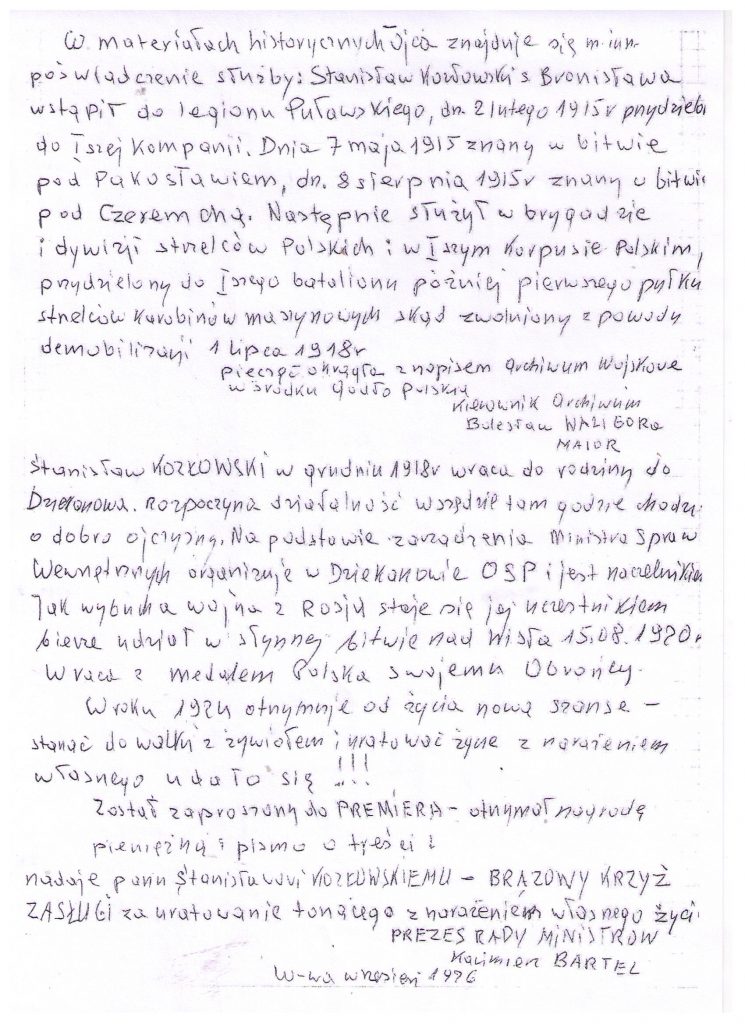 W materiałach historycznych Ojca znajduje się m.inn.
poświadczenie służby: Stanisław Kozłowski s Bronisława
wstąpił do legionu Puławskiego, dn. 2 lutego 1915r przydziel
do Iszej Kompanii. Dnia 7 maja 1915 znany w bitwie
pod Pakosławiem, dn. 8 sierpnia 1915r znany w bitwi
pod Czeremchą. Następnie służył w brygadzie
i dywizji strzelców Polskich i w Iszym Korpusie Polskim,
przydzielony do Iszego batalionu później pierwszego pułku
strzelców karabinów maszynowych skąd zwolniony z powodu
demobilizacji 1 lipca 1918r
pieczęć okrągła z napisem Archiwum Wojskowe
w środku Godło Polskie
Kierownik Archiwum
Bolesław WALIGÓRA
MAJOR
Stanisław KOZŁOWSKI w grudniu 1918r wraca do rodziny do
Dziekanowa. Rozpoczyna działalność wszędzie tam gdzie chodzi
o dobro ojczyzny. Na podstawie zarządzenia Ministra Spraw
Wewnętrznych organizuje w Dziekanowie OSP i jest naczelnikiem
Jak wybucha wojna z Rosją staje się jej uczestnikiem
bierze udział w słynnej bitwie nad Wisłą 15.08.1920r
Wraca z medalem Polska swojemu Obrońcy.
W roku 1924 otrzymuje od życia nową szanse –
stanąć do walki z żywiołem i uratować życie z narażeniem
własnego udało się !!!
Został zaproszony do PREMIERA – otrzymał nagrodę
pieniężną i pismo o treści!
nadaje panu Stanisławowi KOZŁOWSKIEMU – BRĄZOWY KRZYŻ
ZASŁUGI za uratowanie tonącego z narażeniem własnego życi
PREZES RADY MINISTRÓW
Kazimierz BARTEL
W-wa wrzesień 1926